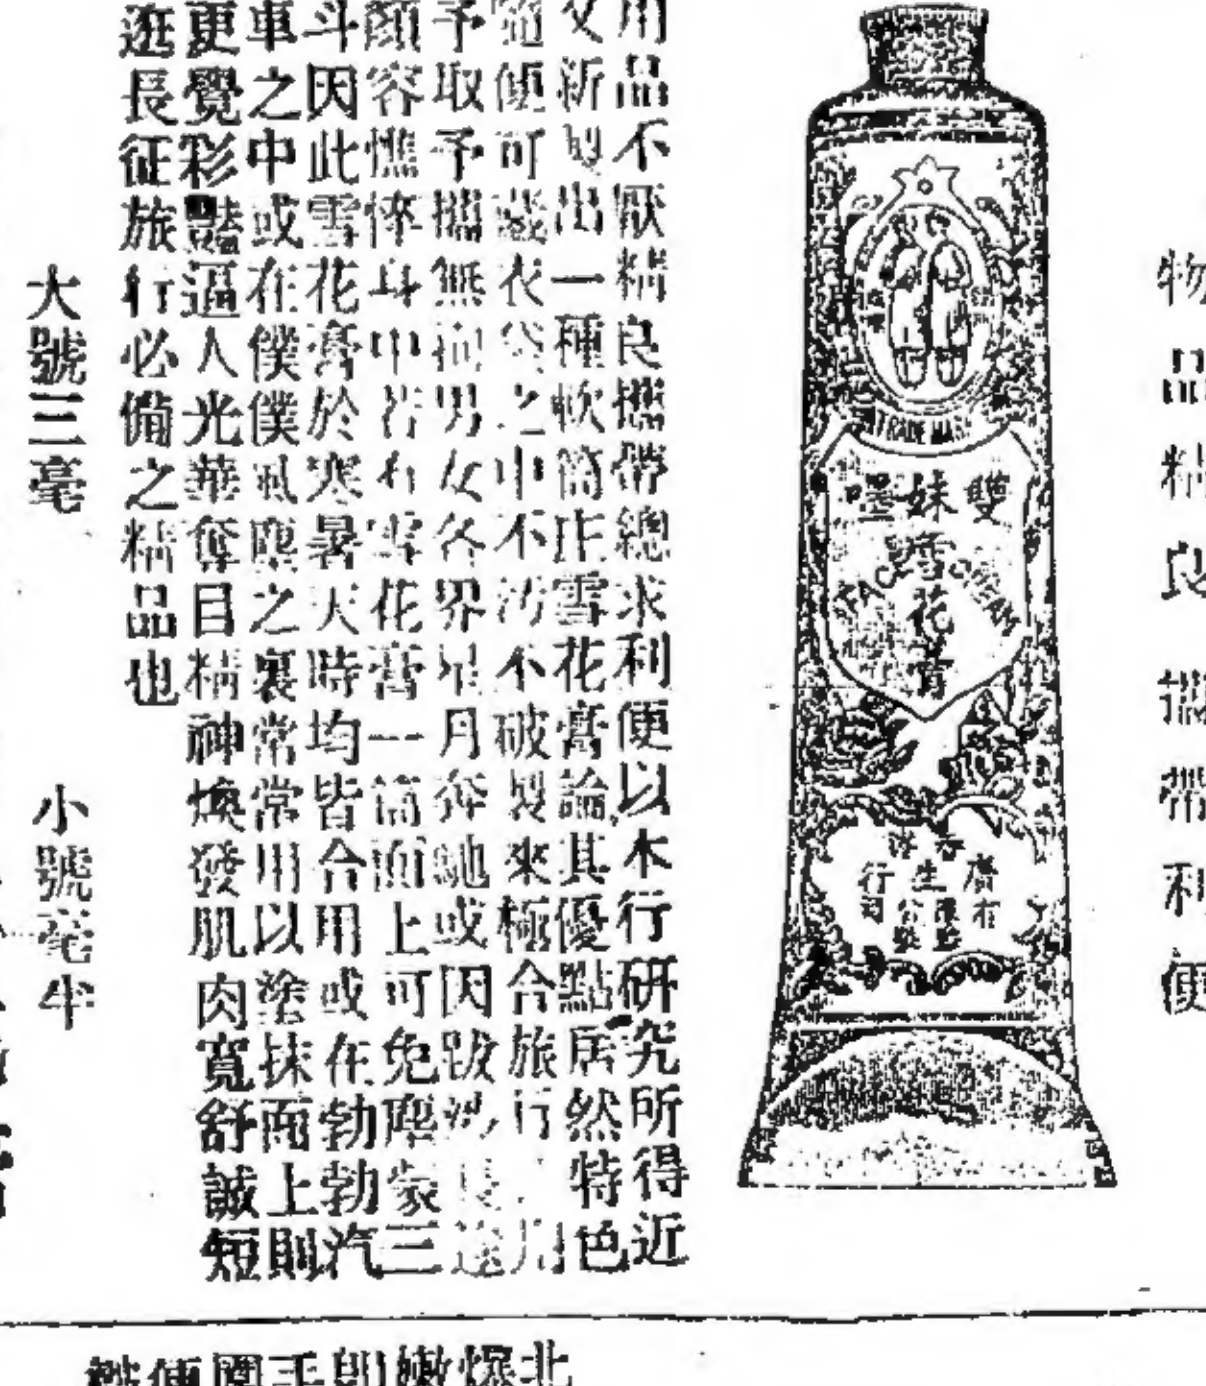 物品精良攜帶利便
TRADE MARK
雙妹嚜
雪花膏
CREAM
用品不厭精良攜帶總求利便以本行研究所得近
又新製出一種軟筒庄雪花膏論其優點居然特色
隨便可藏衣袋之中不污不破製來極合旅行 用
予取予攜無拘男女各界星月奔馳或因跋涉長途
顏容憔悴身中若有雪花膏一筒面上可免塵蒙三
斗因此雪花膏於寒暑天時均皆合用或在勃勃汽
車之中或在僕僕風塵之裏常常用以塗抹面上則
更覺彩豔逼人光華奪目精神煥發肌肉寬舒誠短
遊長征旅行必備之精品也
大號三毫
小號毫半